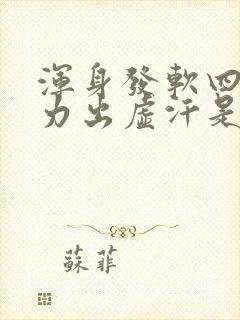 渾身發軟四
力出虛汗是
蘇菲